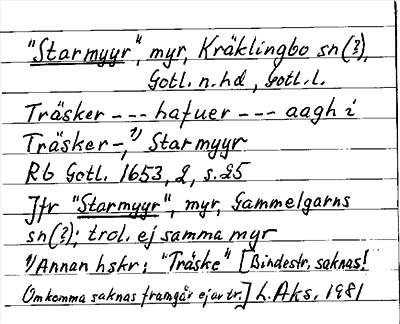 "Starmyyr", myr, Kräklingbo sn(?),
Gotl. n. hd, Gotl. l.
Träsker --- hafuer --- aagh i
Träsker-,¹) Starmyyr
Rb Gotl. 1653, 2, s. 25
Jfr "Starmyyr", myr, Gammelgarns
sn(?); trol. ej samma myr
¹) Annan hskr: "Träske" [Bindestr. saknas!
Omkomma saknas framgår ej av tr.] L. Aks. 1981